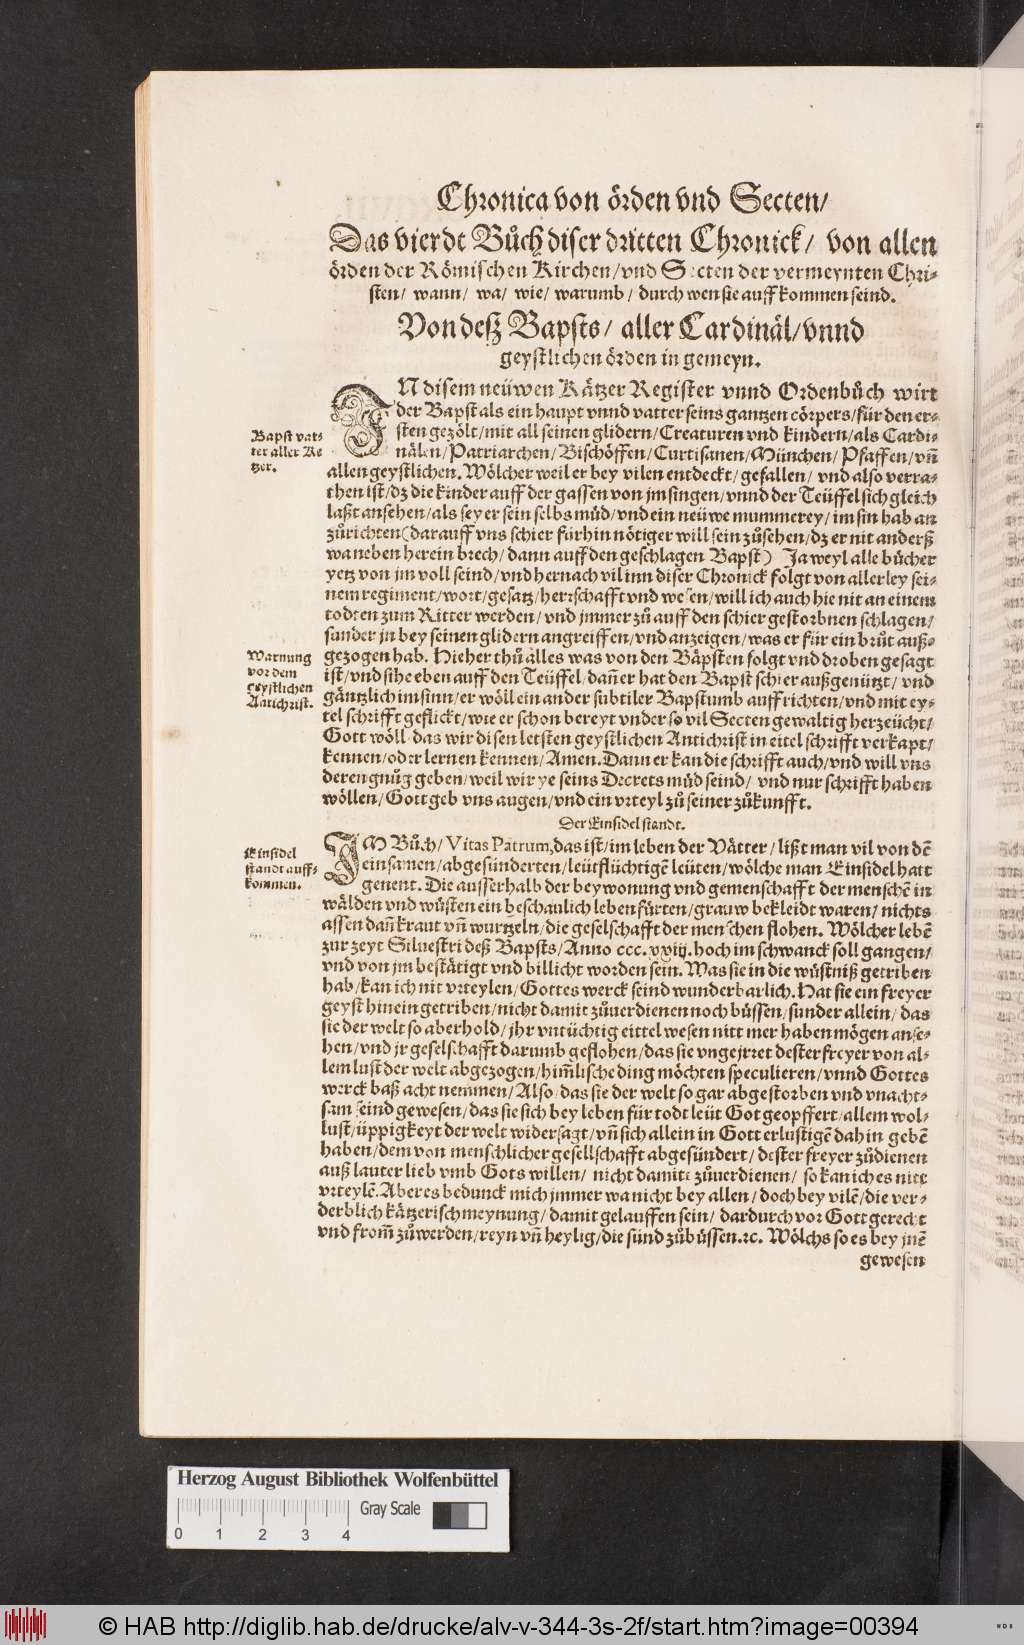 Chronica von örden vnd Secten/
Das vierdt Bůch diser dritten Chronick/ von allen
örden der Römischen Kirchen/vnd Secten der vermeynten Chri-
sten/ wann/ wa/ wie/ warumb/ durch wen sie auff kommen seind.
Von deß Bapsts/ aller Cardinäl/vnnd
geystlichen örden in gemeyn.
IN disem neüwen Kätzer Register vnnd Ordenbůch wirt
der Bapst als ein haupt vnnd vatter seins gantzen cörpers/für den er-
Bapst vat-
ter aller Ke
tzer.
sten gezölt/mit all seinen glidern/Creaturen vnd kindern/als Cardi-
nälen/Patriarchen/Bischöffen/Curtisanen/München/Pfaffen/vñ
allen geystlichen. Wölcher weil er bey vilen entdeckt/gefallen/ vnd also verra-
then ist/dz die kinder auff der gassen von jm singen/vnnd der Teüffel sich gleich
laßt ansehen/als sey er sein selbs müd/vnd ein neüwe mummerey/im sin hab an
zůrichten(darauff vns schier fürhin nötiger will sein zůsehen/dz er nit anderß
wa neben herein brech/dann auff den geschlagen Bapst) Ja weyl alle bücher
yetz von jm voll seind/vnd hernach vil inn diser Chronick folgt von allerley sei-
nem regiment/wort/gesatz/herrschafft vnd wesen/will ich auch hie nit an einem
todten zum Ritter werden/vnd jmmer zů auff den schier gestorbnen schlagen/
sunder jn bey seinen glidern angreiffen/vnd anzeigen/was er für ein brůt auß-
Warnung
vor dem
geystlichen
Antichrist.
gezogen hab. Hieher thů alles was von den Bäpsten folgt vnd droben gesagt
ist/vnd sihe eben auff den Teüffel/dañ er hat den Bapst schier außgenützt/vnd
gäntzlich im sinn/er wöll ein ander subtiler Bapstumb auff richten/vnd mit ey-
tel schrifft geflickt/wie er schon bereyt vnder so vil Secten gewaltig herzeücht/
Gott wöll das wir disen letsten geystlichen Antichrist in eitel schrifft verkapt/
kennen/oder lernen kennen/Amen. Dann er kan die schrifft auch/vnd will vns
deren gnůg geben/weil wir ye seins Decrets müd seind/ vnd nur schrifft haben
wöllen/Gott geb vns augen/vnd ein vrteyl zů seiner zůkunfft.
Der Einsidel standt.
Einsidel
standt auff-
kommen.
IM Bůch/Vitas Patrum,das ist/im leben der Vätter/lißt man vil von dẽ
einsamen/abgesünderten/leütflüchtigẽ leüten/wölche man Einsidel hatt
genent. Die ausserhalb der beywonung vnd gemenschafft der menschẽ in
wälden vnd wüsten ein beschaulich leben fürten/grauw bekleidt waren/nichts
assen dañ kraut vñ wurtzeln/die geselschafft der menschen flohen. Wölcher lebẽ
zur zeyt Siluestri deß Bapsts/Anno ccc. xxiij. hoch im schwanck soll gangen/
vnd von jm bestätigt vnd billicht worden sein. Was sie in die wüstniß getriben
hab/kan ich nit vrteylen/Gottes werck seind wunderbarlich. Hat sie ein freyer
geyst hinein getriben/nicht damit zůuerdienen noch büssen/sunder allein/ das
sie der welt so aberhold/jhr vntüchtig eittel wesen nitt mer haben mögen anse-
hen/vnd jr geselschafft darumb geflohen/das sie vngejrret dester freyer von al-
lem lust der welt abgezogen/himlische ding möchten speculieren/vnnd Gottes
werck baß acht nemmen/Also/das sie der welt so gar abgestorben vnd vnacht-
sam seind gewesen/das sie sich bey leben für todt leüt Got geopffert/allem wol-
lust/üppigkeyt der welt widersagt/vñ sich allein in Gott erlustigẽ dahin gebẽ
haben/dem von menschlicher gesellschafft abgesündert/dester freyer zůdienen
auß lauter lieb vmb Gots willen/ nicht damit zůuerdienen/ so kan ich es nitt
vrteylẽ. Aber es bedunckt mich jmmer wa nicht bey allen/doch bey vilẽ/die ver-
derblich kätzerisch meynung/damit gelauffen sein/ dardurch vor Gott gerecht
vnd from̃ zůwerden/reyn vñ heylig/die sünd zůbüssen.ꝛc. Wölchs so es bey jnẽ
gewesen
Herzog August Bibliothek Wolfenbüttel
Gray Scale
0 1 2 3 4
© HAB http://diglib.hab.de/drucke/alv-v-344-3s-2f/start.htm?image=00394